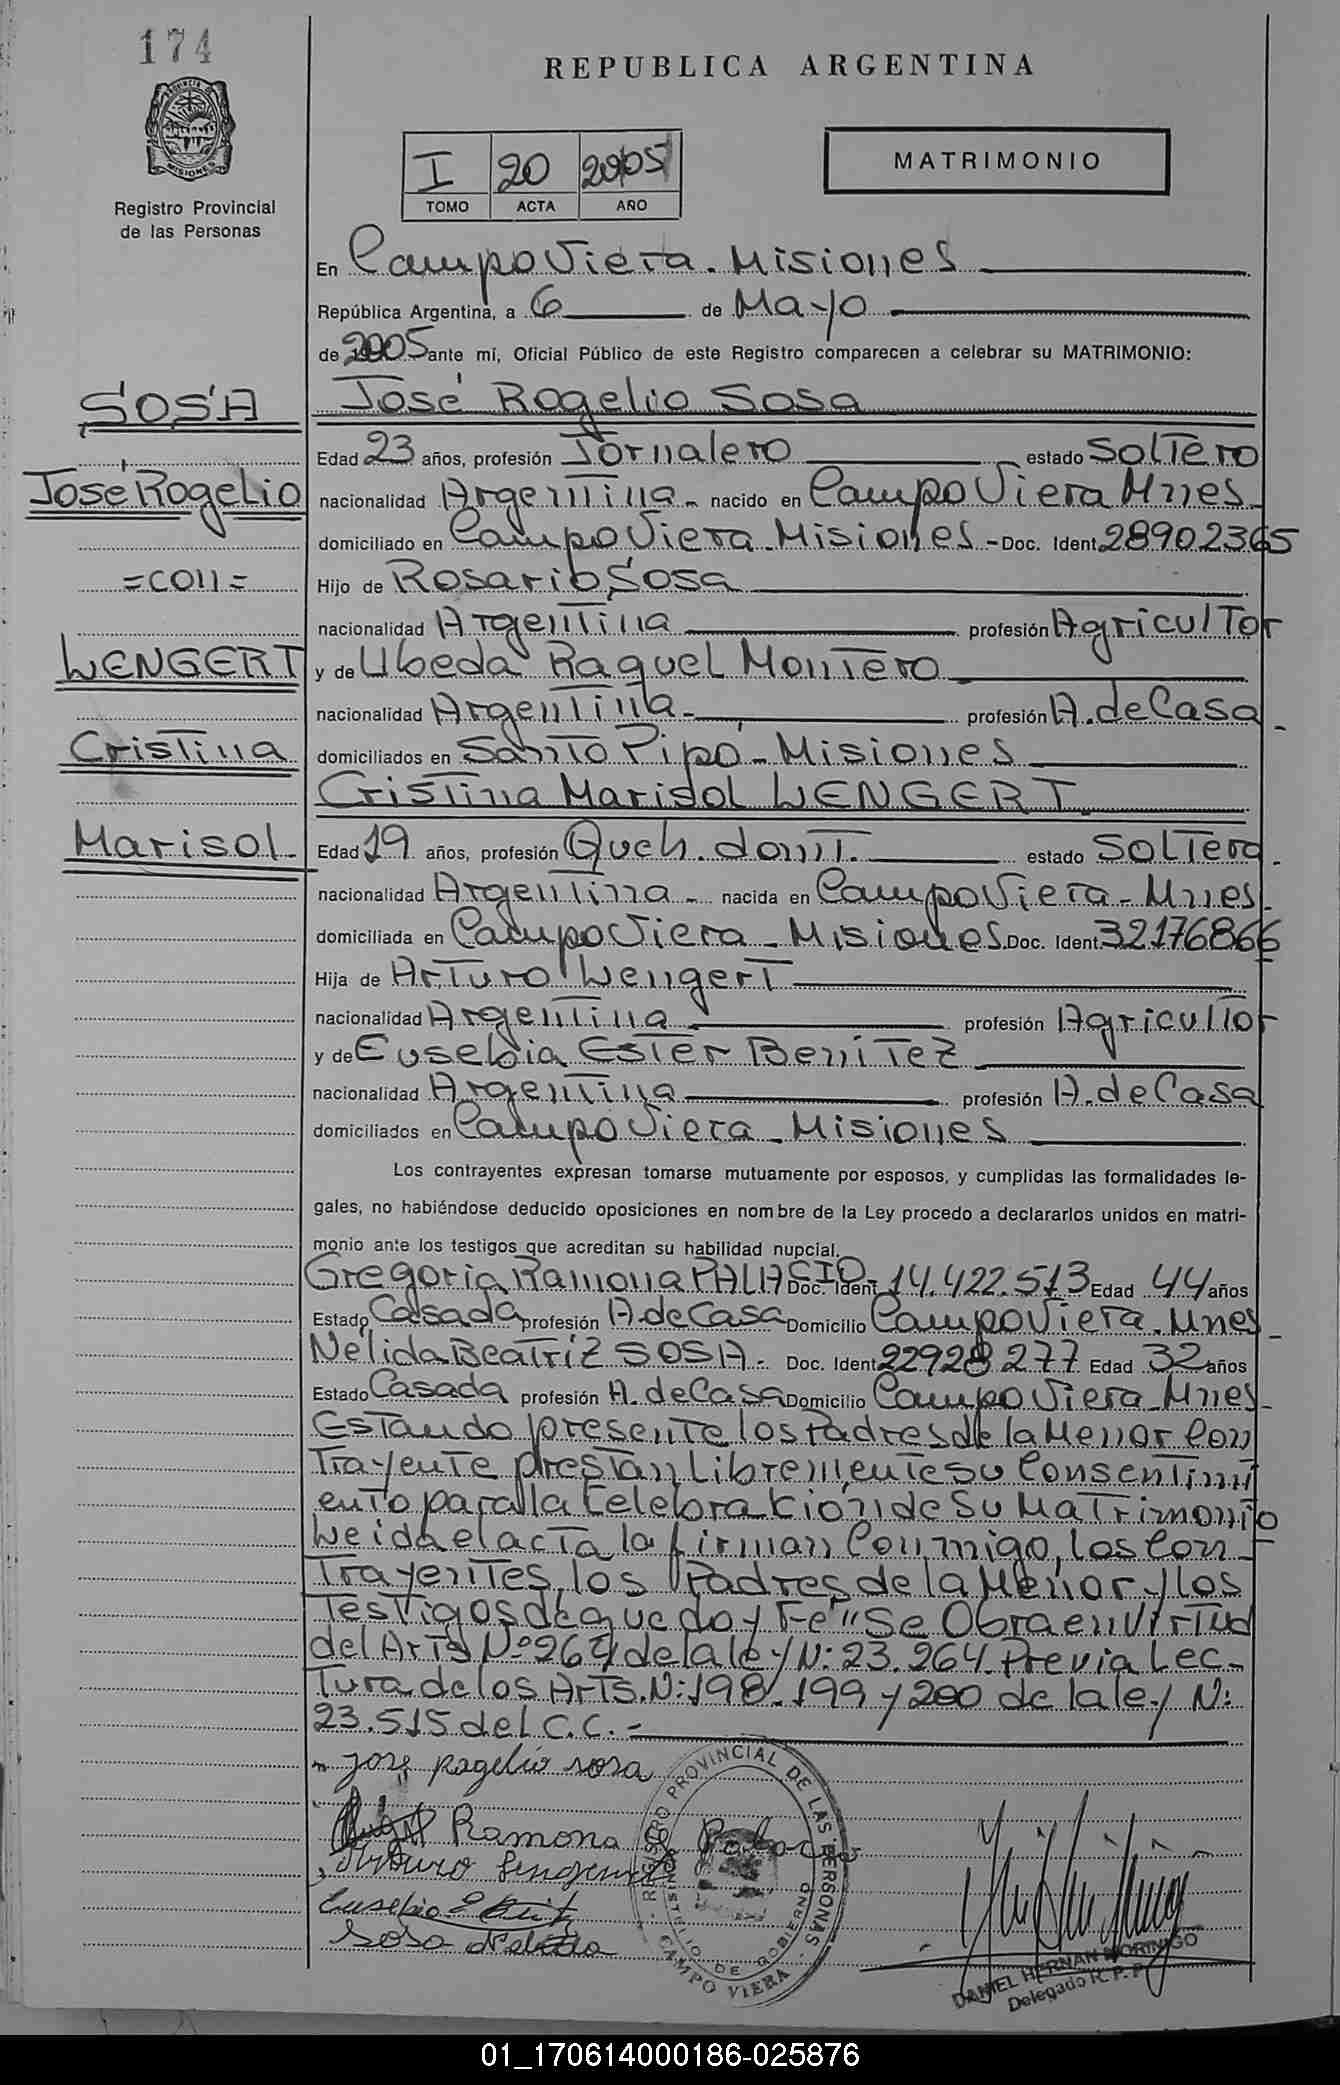 174
REPUBLICA ARGENTINA
MISIONES
Registro Provincial
de las Personas
I 20 2005
TOMO ACTA AÑO
MATRIMONIO
En Campo Viera. Misiones
República Argentina, a 6 de Mayo
de 2005 ante mí, Oficial Público de este Registro comparecen a celebrar su MATRIMONIO:
SOSA
José Rogelio
=con=
WENGERT
Cristina
Marisol
José Rogelio Sosa
Edad 23 años, profesión Jornalero estado Soltero
nacionalidad Argentina - nacido en Campo Viera Mnes
domiciliado en Campo Viera. Misiones - Doc. Ident. 28902365
Hijo de Rosario Sosa
nacionalidad Argentina profesión Agricultor
y de Ubeda Raquel Montero
nacionalidad Argentina - profesión A. de Casa
domiciliados en Santo Pipó - Misiones
Cristina Marisol WENGERT
Edad 19 años, profesión Queh. domt. estado Soltera
nacionalidad Argentina - nacida en Campo Viera - Mnes
domiciliada en Campo Viera - Misiones Doc. Ident. 32176866
Hija de Arturo Wengert
nacionalidad Argentina profesión Agricultor
y de Eusebia Ester Benitez
nacionalidad Argentina profesión A. de Casa
domiciliados en Campo Viera - Misiones
Los contrayentes expresan tomarse mutuamente por esposos, y cumplidas las formalidades le-
gales, no habiéndose deducido oposiciones en nombre de la Ley procedo a declararlos unidos en matri-
monio ante los testigos que acreditan su habilidad nupcial.
Gregoria Ramona PALACIO - Doc. Ident. 14.422.513 Edad 44 años
Estado Casada profesión A de Casa Domicilio Campo Viera. Mnes
Nélida Beatriz SOSA - Doc. Ident. 22928277 Edad 32 años
Estado Casada profesión A. de Casa Domicilio Campo Viera - Mnes
Estando presente los Padres de la Menor Con
trayente prestan Libremente su Consentimi
ento para la Celebración de Su Matrimonio
Leida el acta la firman Conmigo, los Con-
Trayentes, los Padres de la Menor y los
Testigos de que doy Fe" Se Obra en virtud
del Arts Nº 264 de la ley N: 23.264. Previa Lec-
Tura de los Arts. N: 198. 199 y 200 de la ley N:
23.515 del C.C. -
jose rogelio sosa
Ramona
Arturo
Eusebia
Sosa Nelida
REGISTRO PROVINCIAL DE LAS PERSONAS
MINISTERIO DE GOBIERNO
CAMPO VIERA
DANIEL HERNAN MORINIGO
Delegado R. P. P.
01_170614000186-025876